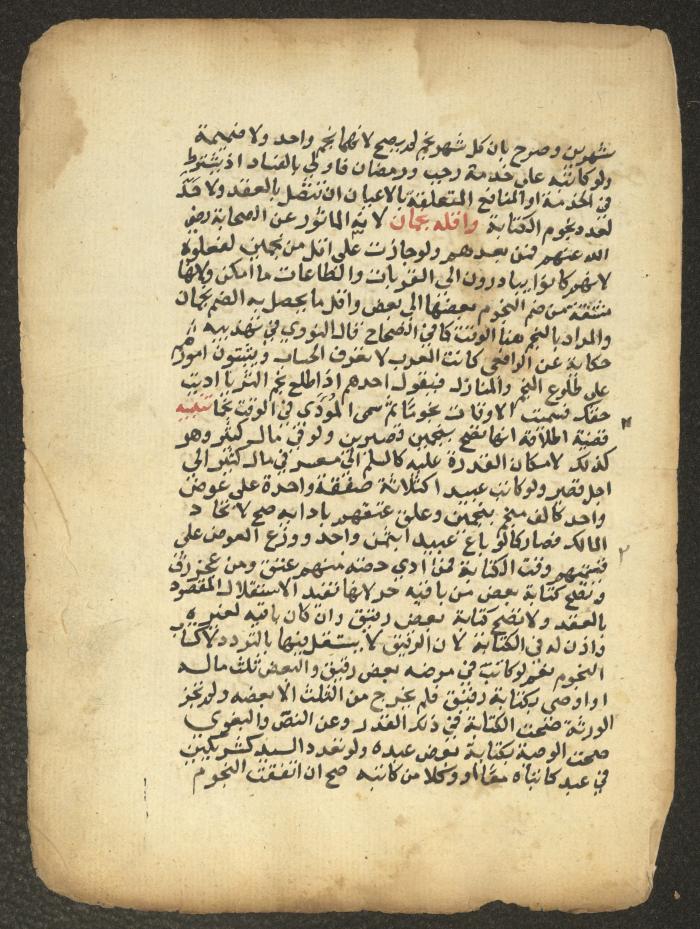 شهرين وصرح بان كل شهر نجم لم يصح لانهما نجم واحد ولا ضميمة
ولو كاتبه على خدمة رجب ورمضان فاولى بالفساد اذ يشترط
في الخدمة او المنافع المتعلقة بالاعيان ان تتصل بالعقد ولا حد
لعدد نجوم الكتابة واقله نجمان لانه الماثور عن الصحابة رضي
الله عنهم فمن بعدهم ولو جازت على اقل من نجمين لفعلوه
لانهم كانوا يبادرون الى القربات والطاعات ما امكن ولانها
مشتقة من ضم النجوم بعضها الى بعض واقل ما يحصل به الضم نجمان
والمراد بالنجم هنا الوقت كما في الصحاح قال النووي في تهذيبه
حكاية عن الرافعي كانت العرب لا تعرف الحساب ويبنون امورهم
على طلوع النجم والمنازل فيقول احدهم اذا طلع نجم الثريا اديت
حقك فسميت الاوقات نجوما ثم سمى المؤدى في الوقت نجما تنبيه
قضية اطلاقه انها تصح بنجمين قصيرين ولو في مال كثير وهو
كذلك لامكان القدرة عليه كالسلم الى معسر في مال كثير الى
اجل قصير ولو كاتب عبيدا كثلاثة صفقة واحدة على عوض
واحد كالف منجم بنجمين وعلق عتقهم بادايه صح لاتحاد
المالك فصار كما لو باع عبيدا بثمن واحد ووزع العوض على
قيمتهم وقت الكتابة فمن ادى حصته منهم عتق ومن عجز رق
وتصح كتابة بعض من باقيه حر لانها تفيد الاستقلال المقصود
بالعقد ولا تصح كتابة بعض رقيق وان كان باقيه لغيره
واذن له في الكتابة لان الرقيق لا يستقل فيها بالتردد لاكتساب
النجوم نعم لو كاتب في مرضه بعض رقيق والبعض ثلث ماله
او اوصى بكتابة رقيق فلم يخرج من الثلث الا بعضه ولم تجز
الورثة صحت الكتابة في ذلك القدر وعن النص والبغوي
صحت الوصية بكتابة بعض عبده ولو تعدد السيد كشريكين
في عبد كاتباه معا او وكلا من كاتبه صح ان اتفقت النجوم